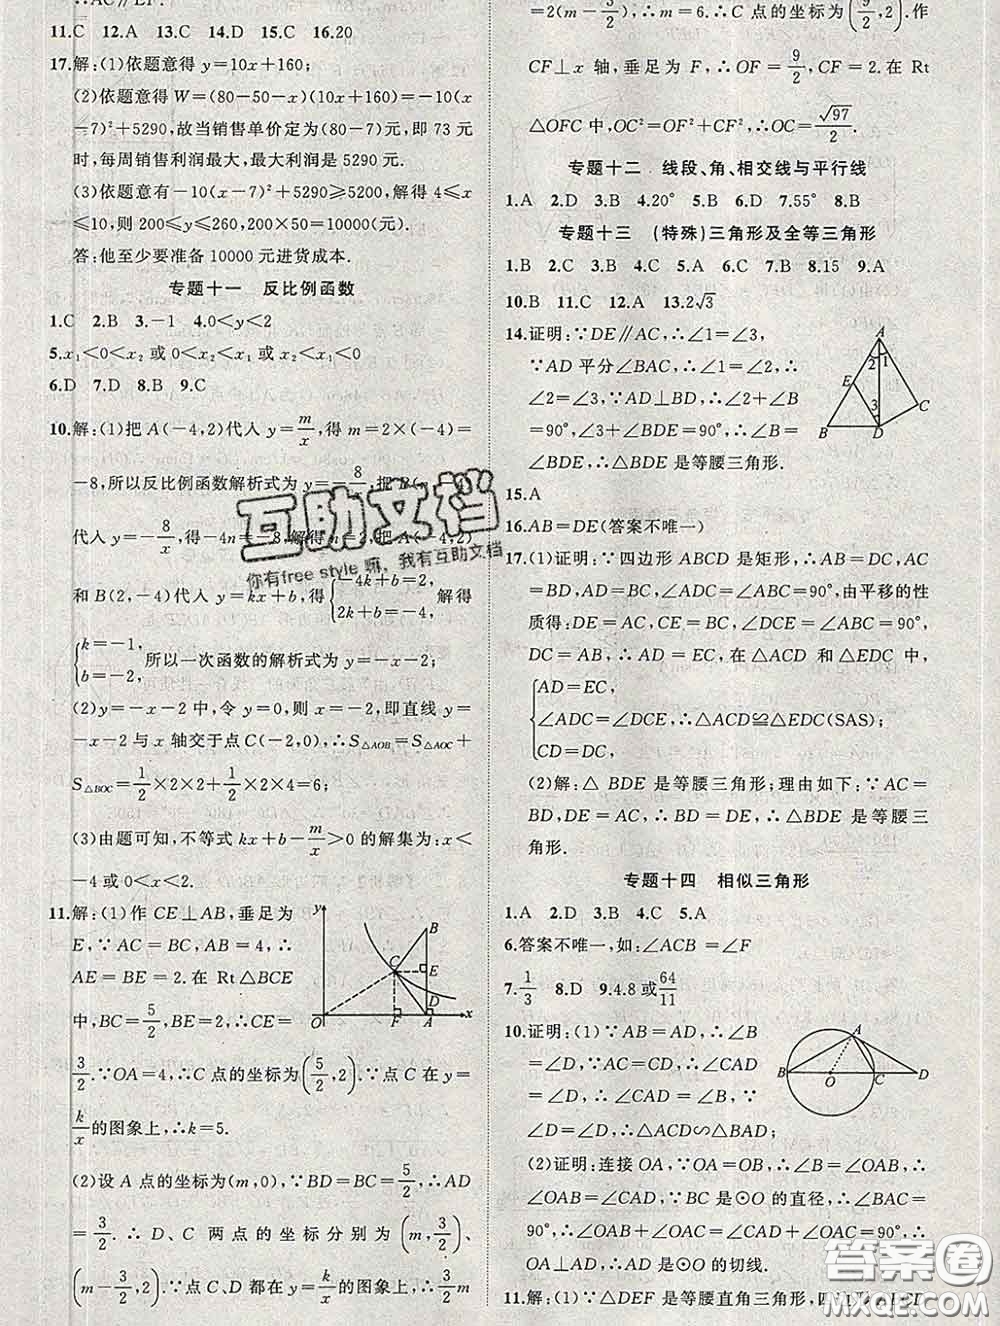 ∴AC∥EF.
11.C 12.A 13.C 14.D 15.C 16.20
17.解:(1)依题意得 y=10x+160;
(2)依题意得 W=(80-50-x)(10x+160)=-10(x
-7)²+5290,故当销售单价定为(80-7)元,即 73 元
时,每周销售利润最大,最大利润是 5290 元.
(3)依题意有-10(x-7)²+5290≥5200,解得 4≤x
≤10,则 200≤y≤260,200×50=10000(元).
答:他至少要准备 10000 元进货成本.
专题十一 反比例函数
1.C 2.B 3.-1 4.0<y<2
5.x₁<0<x₂ 或 0<x₂<x₁ 或 x₂<x₁<0
6.D 7.D 8.B 9.C
10.解:(1)把 A(-4,2)代入 y=m/x,得 m=2×(-4)=
-8,所以反比例函数解析式为 y=-8/x,把 B(
代入 y=-8/x,得-4n=-8,解得 n=2,把 A(-4,2)
和 B(2,-4)代入 y=kx+b,得{-4k+b=2, 2k+b=-4, 解得
{k=-1, b=-2, 所以一次函数的解析式为 y=-x-2;
(2)y=-x-2 中,令 y=0,则 x=-2,即直线 y=
-x-2 与 x 轴交于点 C(-2,0),∴S△AOB=S△AOC+
S△BOC=1/2×2×2+1/2×2×4=6;
(3)由题可知,不等式 kx+b-m/x>0 的解集为:x<
-4或 0<x<2.
11.解:(1)作 CE⊥AB,垂足为
E,∵AC=BC,AB=4,∴
AE=BE=2.在 Rt△BCE
中,BC=5/2,BE=2,∴CE=
3/2.∵OA=4,∴C 点的坐标为(5/2,2).∵点 C 在 y=
k/x的图象上,∴k=5.
(2)设 A 点的坐标为(m,0),∵BD=BC=5/2,∴AD
=3/2.∴D、C 两点的坐标分别为(m,3/2)、
(m-3/2,2).∵点 C、D 都在 y=k/x的图象上,∴3/2m
y
B
C
E
D
O
F
A
x
=2(m-3/2),∴m=6.∴C 点的坐标为(9/2,2).作
CF⊥x 轴,垂足为 F,∴OF=9/2,CF=2.在 Rt
△OFC 中,OC²=OF²+CF²,∴OC=√97/2.
专题十二 线段、角、相交线与平行线
1.A 2.D 3.B 4.20° 5.B 6.D 7.55° 8.B
专题十三 (特殊)三角形及全等三角形
1.B 2.C 3.D 4.C 5.A 6.C 7.C 8.15 9.A
10.B 11.C 12.A 13.2√3
14.证明:∵DE∥AC,∴∠1=∠3,
∵AD 平分∠BAC,∴∠1=∠2,∴
∠2=∠3,∵AD⊥BD,∴∠2+∠B
=90°,∠3+∠BDE=90°,∴∠B=
∠BDE,∴△BDE 是等腰三角形.
A
2
1
E
3
C
B
D
15.A
16.AB=DE(答案不唯一)
17.(1)证明:∵四边形 ABCD 是矩形,∴AB=DC,AC
=BD,AD=BC,∠ADC=∠ABC=90°,由平移的性
质得:DE=AC,CE=BC,∠DCE=∠ABC=90°,
DC=AB,∴AD=EC,在△ACD 和△EDC 中,
{AD=EC,
∠ADC=∠DCE,∴△ACD≌△EDC(SAS);
CD=DC,
(2)解:△BDE 是等腰三角形;理由如下:∵AC=
BD,DE=AC,∴BD=DE,∴△BDE 是等腰三
角形.
专题十四 相似三角形
1.A 2.D 3.B 4.C 5.A
6.答案不唯一,如:∠ACB=∠F
7.1/3 8.D 9.4.8或64/11
10.证明:(1)∵AB=AD,∴∠B
=∠D,∵AC=CD,∴∠CAD
=∠D,∴∠CAD=∠B,∵
∠D=∠D,∴△ACD∽△BAD;
(2)证明:连接 OA,∵OA=OB,∴∠B=∠OAB,∴
∠OAB=∠CAD,∵BC 是⊙O 的直径,∴∠BAC=
90°,∴∠OAB+∠OAC=∠CAD+∠OAC=90°,∴
OA⊥AD,∴AD 是⊙O 的切线.
A
B
O
C
D
11.解:(1)∵△DEF 是等腰直角三角形,四边形 ABCD
互助文档
你有free style 嘛,我有互助文档
答案圈